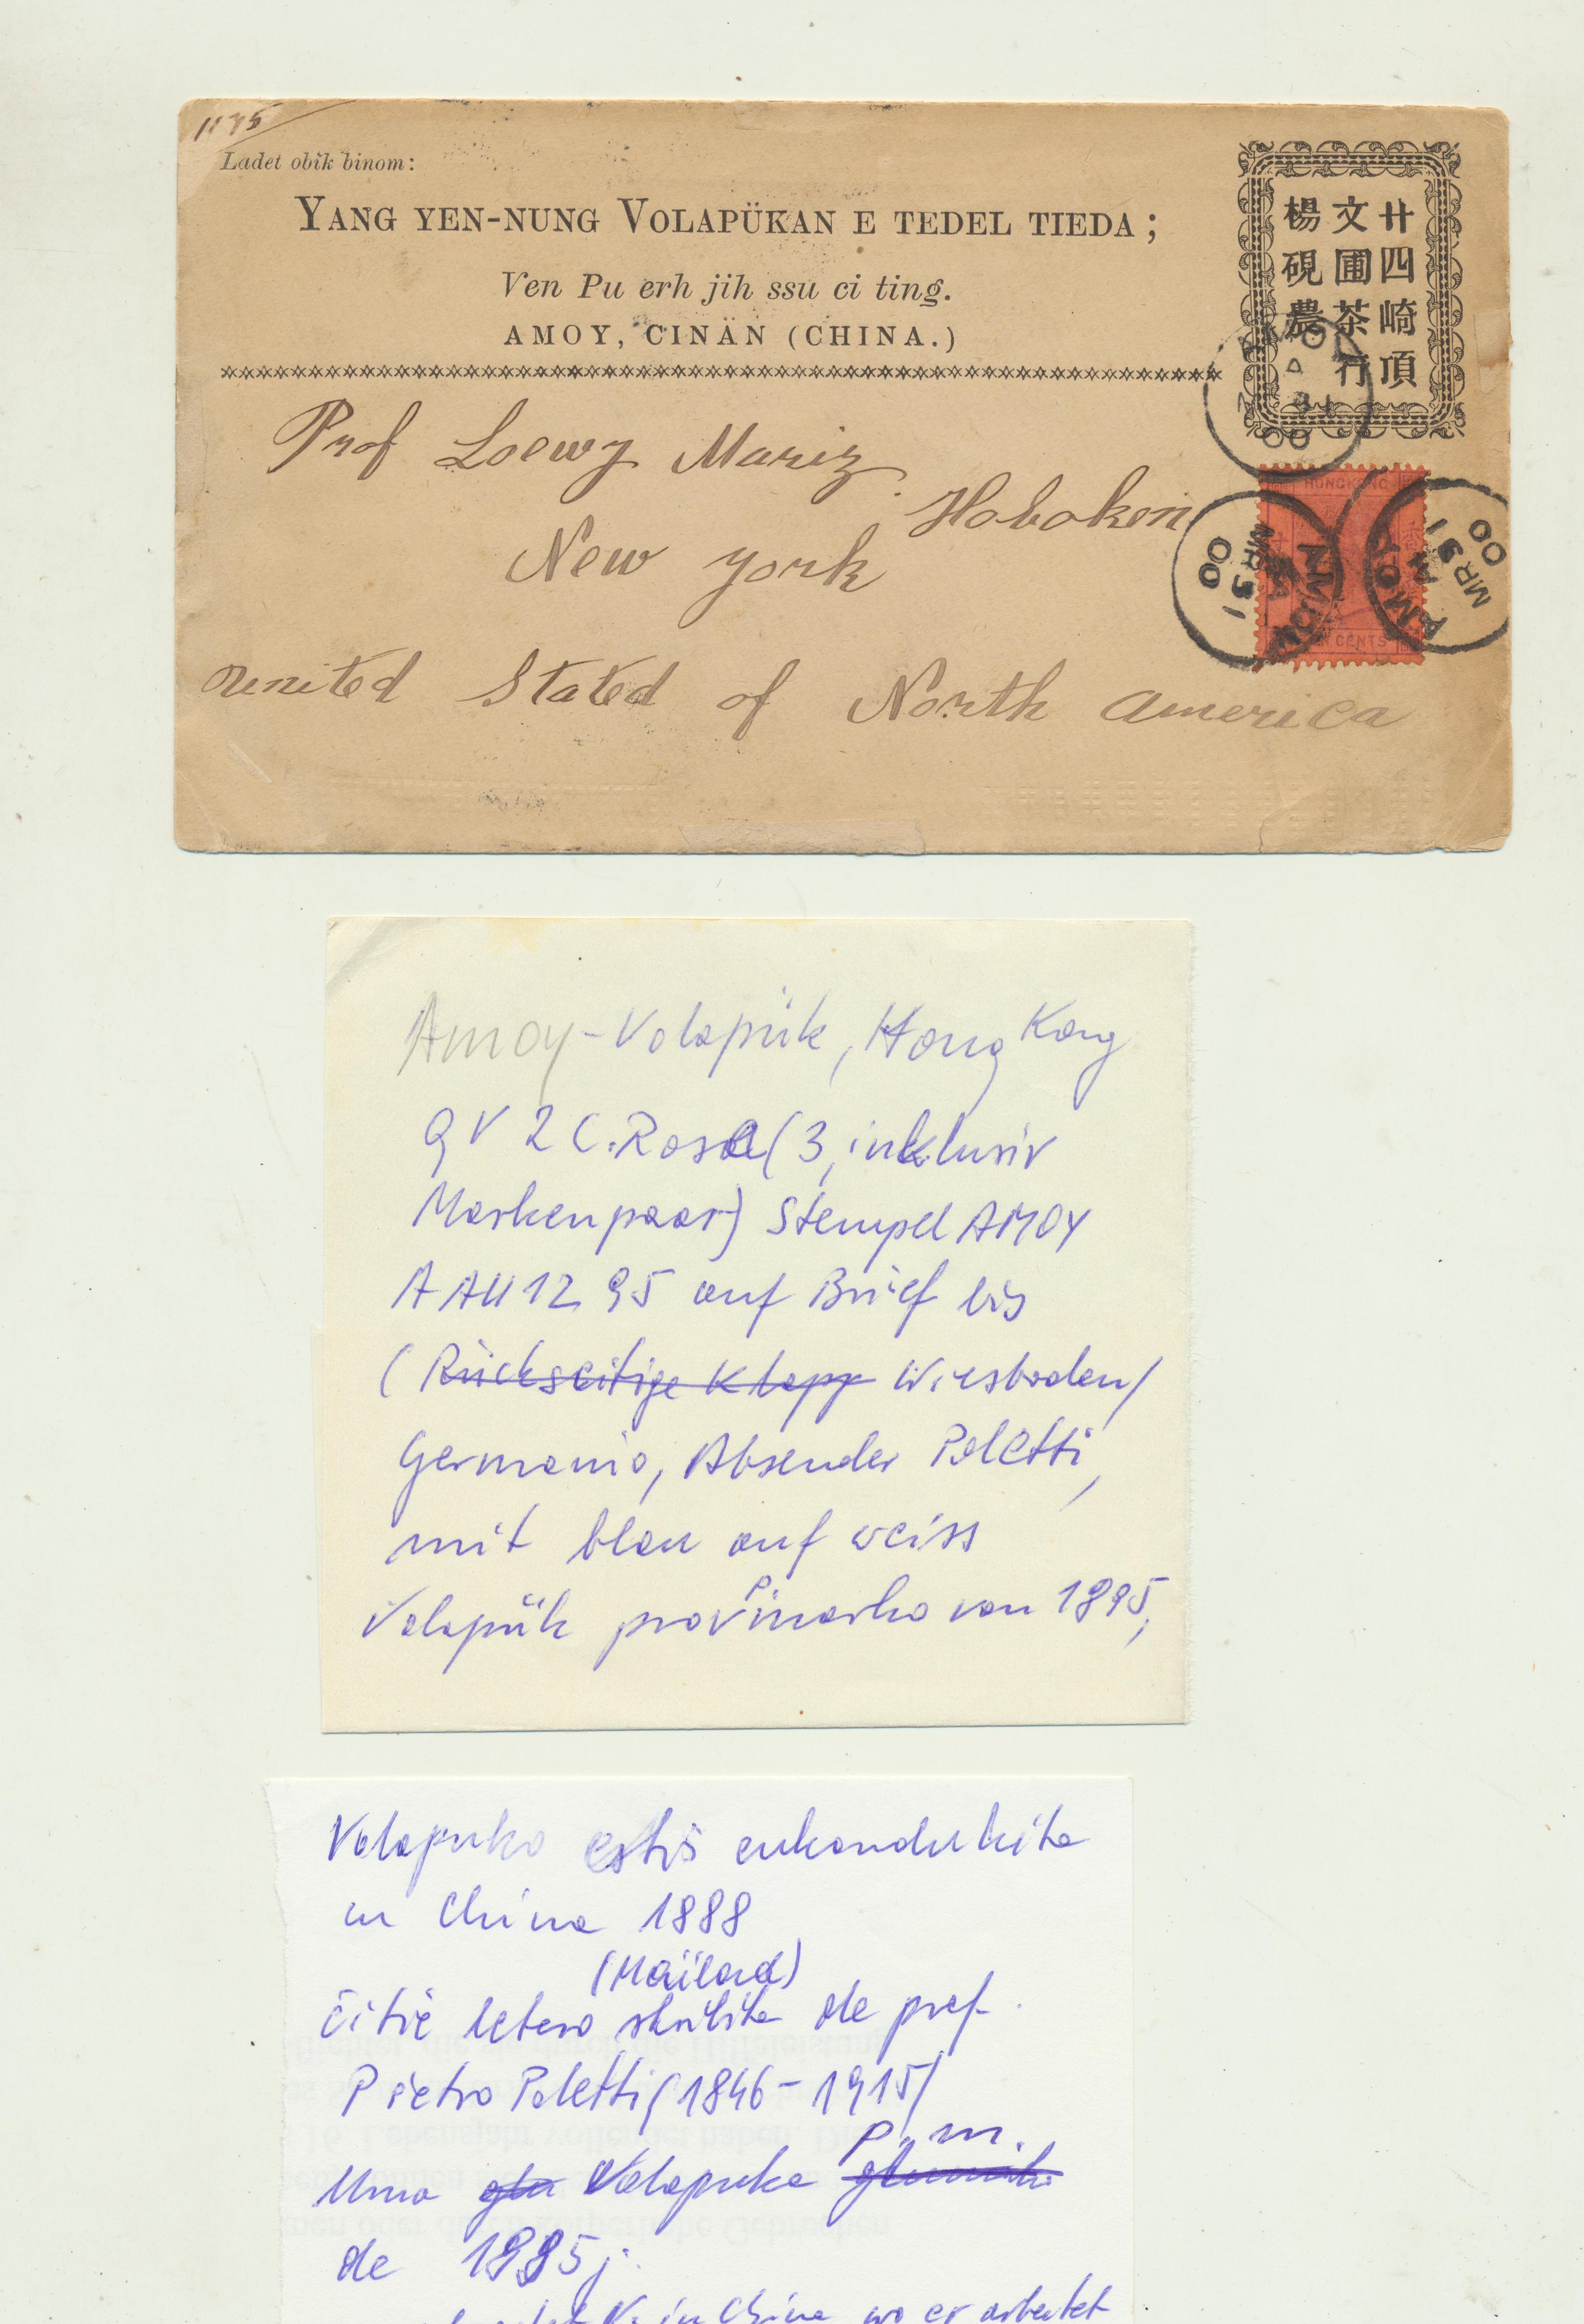 1175
Ladet obik binom:
YANG YEN-NUNG VOLAPÜKAN E TEDEL TIEDA;
Ven Pu erh jih ssu ci ting.
AMOY, CINÄN (CHINA.)
廿四崎頂
文圃茶行
楊硯農
HONG KONG
CENTS
AMOY
A
MR 31
00
AMOY
A
MR 31
00
Prof Loewy Mariz
Hoboken
New york
united Stated of North america
Amoy-Volapük, Hong Kong
QV 2 C. Rosa (3, inklusiv
Markenpaar) Stempel AMOY
A AU 12 95 auf Brief bis
(Rückseitige Klapp Wiesbaden/
Germanio, Absender Poletti,
mit blau auf weiss
Volapük von 1895,
Volapuko estis enkondukita
en China 1888
(Mailard)
ĉi tie letero skribita de prof.
Pietro Poletti (1846-1915)
Unua Volapuka p. m.
de 1895 j.
in China, wo er arbeitet